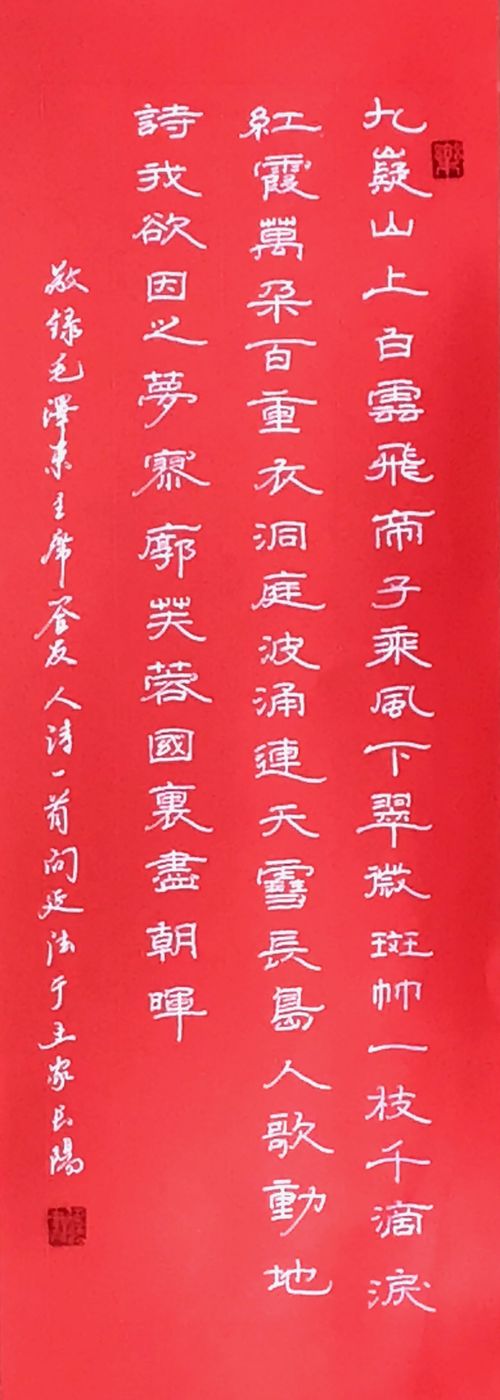 九嶷山上白雲飛帝子乘風下翠微斑竹一枝千滴淚
紅霞萬朵百重衣洞庭波涌連天雪長島人歌動地
詩我欲因之夢寥廓芙蓉國裏盡朝暉
敬録毛澤東主席荅友人詩一首向延法于